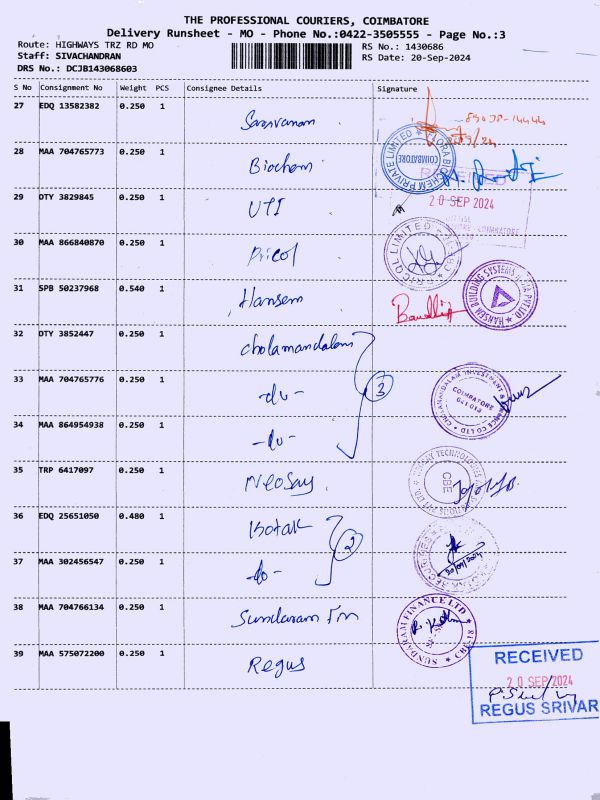 THE PROFESSIONAL COURIERS, COIMBATORE
Delivery Runsheet - MO - Phone No.:0422-3505555 - Page No.:3
Route: HIGHWAYS TRZ RD MO
RS No.: 1430686
Staff: SIVACHANDRAN
RS Date: 20-Sep-2024
DRS No.: DCJB143068603
S No Consignment No Weight PCS Consignee Details Signature
27 EDQ 13582382 0.250 1 Saravanam
28 MAA 704765773 0.250 1 Biochem
COIMBATORE
29 DTY 3829845 0.250 1 UTI
RECEIVED
20 SEP 2024
30 MAA 866840870 0.250 1 Pricol
PRICOL LIMITED
31 SPB 50237968 0.540 1 Hansem
HANSEM BUILDING SYSTEMS
32 DTY 3852447 0.250 1 Cholamandalam
33 MAA 704765776 0.250 1 -du- 3
CHOLAMANDALAM INVESTMENT & FINANCE CO LTD
COIMBATORE
641 018
34 MAA 864954938 0.250 1 -du-
35 TRP 6417097 0.250 1 Neosay
CBE
36 EDQ 25651050 0.480 1 Kotak
37 MAA 302456547 0.250 1 -do- 2
38 MAA 704766134 0.250 1 Sundaram Fm
SUNDARAM FINANCE LTD
39 MAA 575072200 0.250 1 Regus
RECEIVED
20 SEP 2024
REGUS SRIVAR